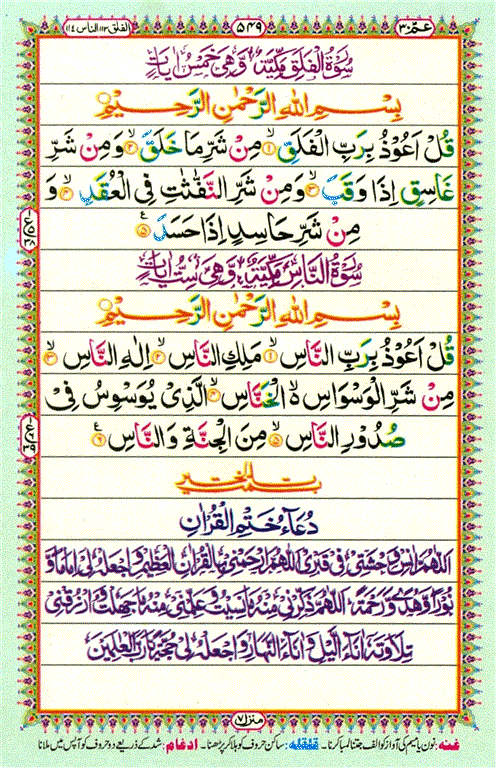 عَمَّ ٣٠ ٥٤٩ الفلق ١١٣ الناس ١١٤
سُوْرَةُ الْفَلَقِ مَكِّيَّةٌ وَّهِیَ خَمْسُ اٰیَاتٍ
بِسْمِ اللهِ الرَّحْمٰنِ الرَّحِیْمِ
قُلْ اَعُوْذُ بِرَبِّ الْفَلَقِ ۙ﴿۱﴾ مِنْ شَرِّ مَا خَلَقَ ۙ﴿۲﴾ وَ مِنْ شَرِّ
غَاسِقٍ اِذَا وَقَبَ ۙ﴿۳﴾ وَ مِنْ شَرِّ النَّفّٰثٰتِ فِی الْعُقَدِ ۙ﴿۴﴾ وَ
مِنْ شَرِّ حَاسِدٍ اِذَا حَسَدَ ﴿۵﴾
سُوْرَةُ النَّاسِ مَكِّيَّةٌ وَّهِیَ سِتُّ اٰیَاتٍ
بِسْمِ اللهِ الرَّحْمٰنِ الرَّحِیْمِ
قُلْ اَعُوْذُ بِرَبِّ النَّاسِ ۙ﴿۱﴾ مَلِكِ النَّاسِ ۙ﴿۲﴾ اِلٰهِ النَّاسِ ۙ﴿۳﴾
مِنْ شَرِّ الْوَسْوَاسِ ۙ۬ الْخَنَّاسِ ۪ۙ﴿۴﴾ الَّذِیْ یُوَسْوِسُ فِیْ
صُدُوْرِ النَّاسِ ۙ﴿۵﴾ مِنَ الْجِنَّةِ وَ النَّاسِ ﴿۶﴾
دُعَآءُ خَتْمِ الْقُرْاٰنِ
اَللّٰهُمَّ اٰنِسْ وَحْشَتِیْ فِیْ قَبْرِیْ اَللّٰهُمَّ ارْحَمْنِیْ بِالْقُرْاٰنِ الْعَظِیْمِ وَاجْعَلْهُ لِیْ اِمَامًا وَّ
نُوْرًا وَّهُدًی وَّرَحْمَةً اَللّٰهُمَّ ذَكِّرْنِیْ مِنْهُ مَا نَسِیْتُ وَعَلِّمْنِیْ مِنْهُ مَا جَهِلْتُ وَارْزُقْنِیْ
تِلَاوَتَهٗ اٰنَآءَ الَّیْلِ وَاٰنَآءَ النَّهَارِ وَاجْعَلْهُ لِیْ حُجَّةً یَّا رَبَّ الْعٰلَمِیْنَ
منزل ٧
غنہ: نون یا میم کی آواز کو الف جتنا لمبا کرنا۔ قلقلہ: ساکن حروف کو ہلا کر پڑھنا۔ ادغام: شد کے ذریعے دو حروف کو آپس میں ملانا